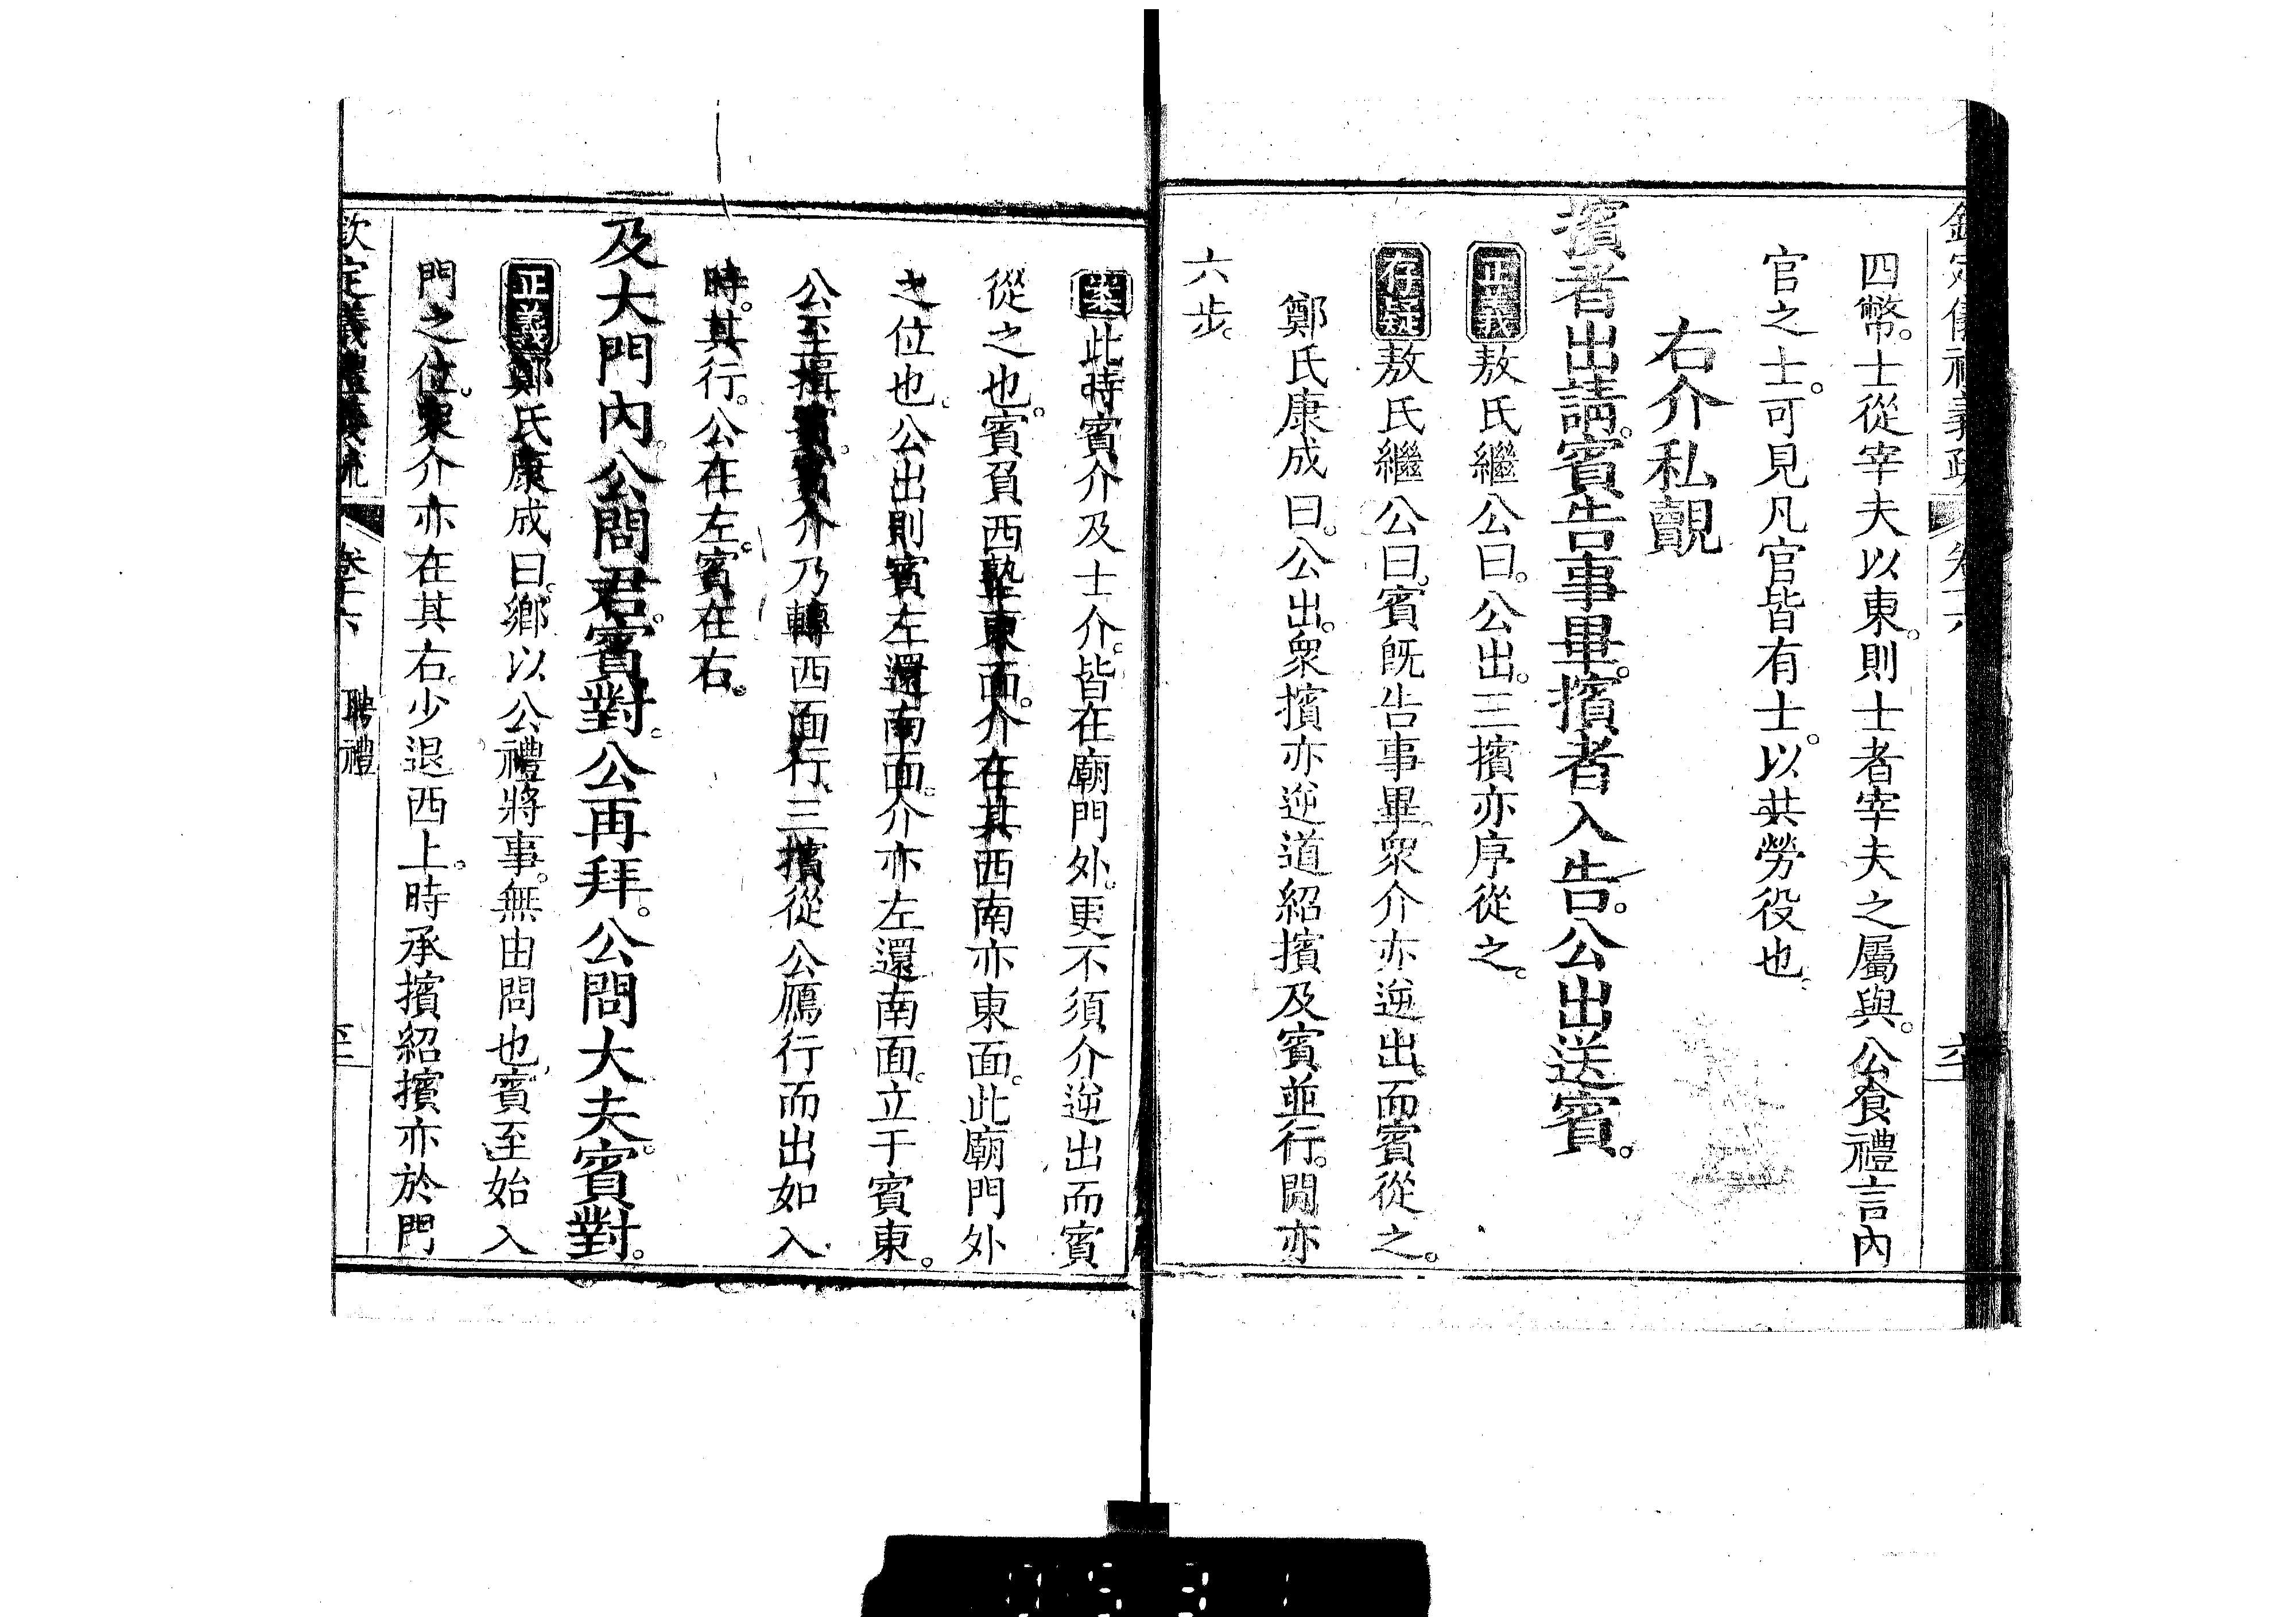 欽定儀禮義疏 卷十六
四幣。士從宰夫以東。則士者宰夫之屬與。公食禮言內
官之士。可見凡官皆有士。以共勞役也。
右介私覿
擯者出請。賓告事畢。擯者入告。公出送賓。
正義敖氏繼公曰。公出。三擯亦序從之。
存疑敖氏繼公曰。賓旣告事畢。衆介亦逆出。而賓從之。
鄭氏康成曰。公出。衆擯亦逆道。紹擯及賓並行。閒亦
六步。
案此時賓介及士介。皆在廟門外。更不須介逆出而賓
從之也。賓負西塾東面。介在其西南亦東面。此廟門外
之位也。公出則賓左還南面。介亦左還南面。立于賓東。
公至揖賓。賓介乃轉西面行。三擯從公鴈行而出如入
時。其行。公在左。賓在右。
及大門內。公問君。賓對。公再拜。公問大夫。賓對。
正義鄭氏康成曰。鄉以公禮將事。無由問也。賓至始入
門之位。衆介亦在其右。少退西上。時承擯紹擯亦於門
欽定儀禮義疏 卷十六 聘禮